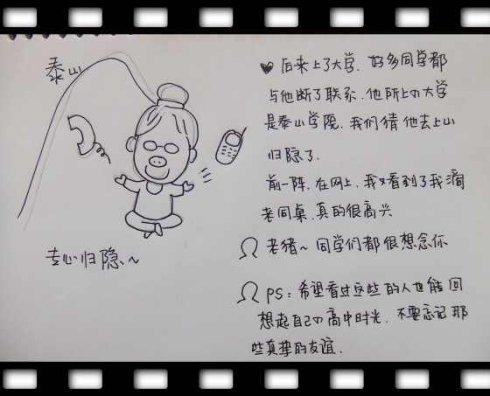 泰山
专心归隐~
后来上了大学,好多同学都
与他断了联系,他所上的大学
是泰山学院,我们猜他去上山
归隐了.
前一阵,在网上,我又看到了我滴
老同桌,真的很高兴
老猪~同学们都很想念你
PS:希望看过这些的人也能回
想起自己的高中时光,不要忘记那
些真挚的友谊.